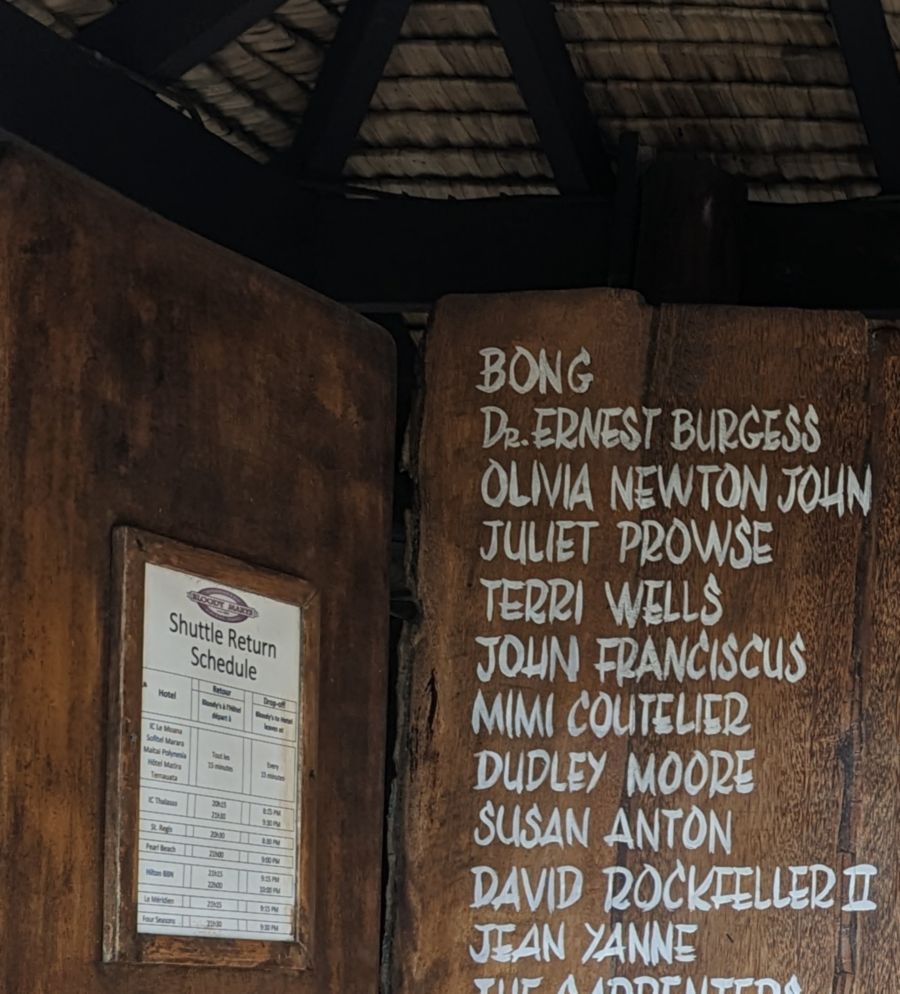 BLOODY MARY'S
Shuttle Return
Schedule
Hotel
Retour
Bloody's à l'hôtel
départ à
Drop-off
Bloody's to Hotel
leaves at
IC Le Moana
Sofitel Marara
Maitai Polynesia
Hôtel Matira
Temauata
Tout les
15 minutes
Every
15 minutes
IC Thalasso 20h15 8:15 PM
21h30 9:30 PM
St. Regis 20h30 8:30 PM
Pearl Beach 21h00 9:00 PM
Hilton BBN 21h15 9:15 PM
22h00 10:00 PM
Le Méridien 21h15 9:15 PM
Four Seasons 21h30 9:30 PM
BONG
DR. ERNEST BURGESS
OLIVIA NEWTON JOHN
JULIET PROWSE
TERRI WELLS
JOHN FRANCISCUS
MIMI COUTELIER
DUDLEY MOORE
SUSAN ANTON
DAVID ROCKFELLER II
JEAN YANNE
THE CARPENTERS